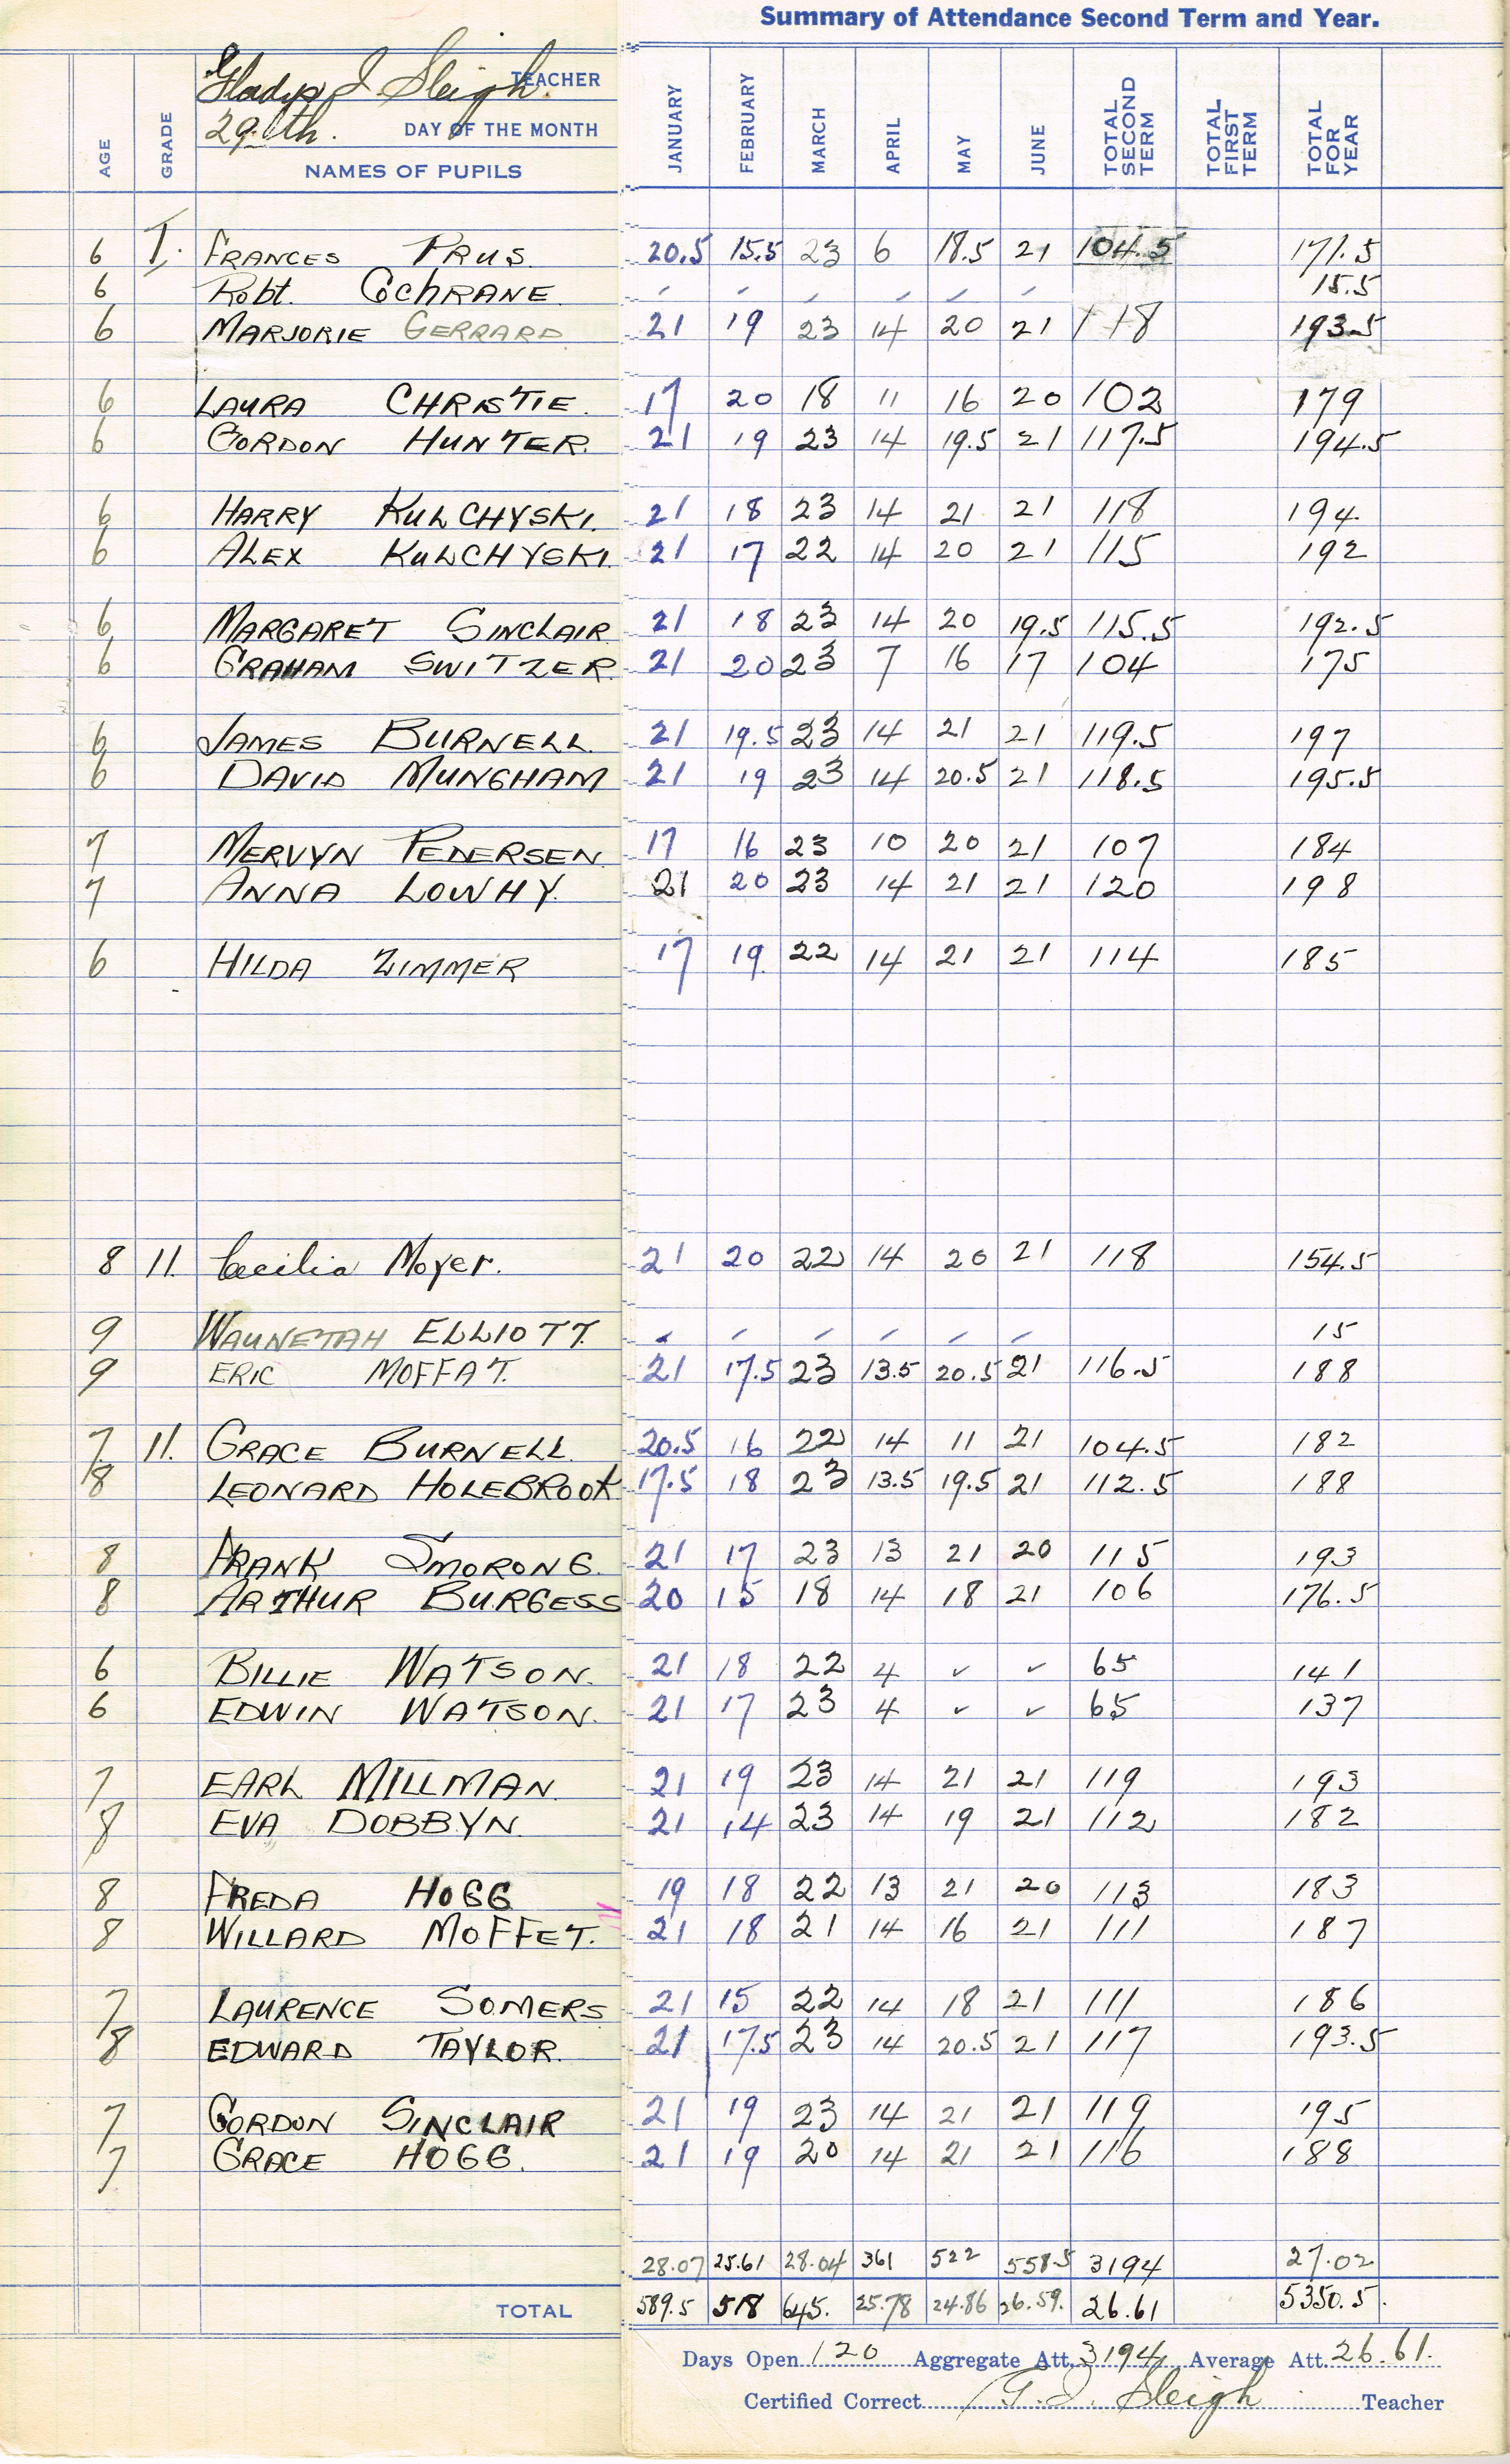 Summary of Attendance Second Term and Year.
Gladys J. Sleigh. TEACHER
29th. DAY OF THE MONTH
AGE GRADE NAMES OF PUPILS JANUARY FEBRUARY MARCH APRIL MAY JUNE TOTAL SECOND TERM TOTAL FIRST TERM TOTAL FOR YEAR
6 I. FRANCES PRUS. 20.5 15.5 23 6 18.5 21 104.5 171.5
6 Robt. COCHRANE 15.5
6 MARJORIE GERRARD 21 19 23 14 20 21 118 193.5
6 LAURA CHRISTIE. 17 20 18 11 16 20 102 179
6 GORDON HUNTER. 21 19 23 14 19.5 21 117.5 194.5
6 HARRY KULCHYSKI. 21 18 23 14 21 21 118 194
6 ALEX KULCHYSKI. 21 17 22 14 20 21 115 192
6 MARGARET SINCLAIR 21 18 23 14 20 19.5 115.5 192.5
6 GRAHAM SWITZER. 21 20 23 7 16 17 104 175
6 JAMES BURNELL. 21 19.5 23 14 21 21 119.5 197
6 DAVID MUNGHAM 21 19 23 14 20.5 21 118.5 195.5
7 MERVYN PEDERSEN. 17 16 23 10 20 21 107 184
7 ANNA LOWHY. 21 20 23 14 21 21 120 198
6 HILDA ZIMMER 17 19. 22 14 21 21 114 185
8 11. Cecilia Moyer. 21 20 22 14 20 21 118 154.5
9 WAUNETAH ELLIOTT. 15
9 ERIC MOFFAT. 21 17.5 23 13.5 20.5 21 116.5 188
7 11. GRACE BURNELL. 20.5 16 22 14 11 21 104.5 182
8 LEONARD HOLEBROOK 17.5 18 23 13.5 19.5 21 112.5 188
8 FRANK SMORONG. 21 17 23 13 21 20 115 193
8 ARTHUR BURGESS 20 15 18 14 18 21 106 176.5
6 BILLIE WATSON. 21 18 22 4 ✓ ✓ 65 141
6 EDWIN WATSON. 21 17 23 4 ✓ ✓ 65 137
7 EARL MILLMAN. 21 19 23 14 21 21 119 193
8 EVA DOBBYN. 21 14 23 14 19 21 112 182
8 FREDA HOGG 19 18 22 13 21 20 113 183
8 WILLARD MOFFET. 21 18 21 14 16 21 111 187
7 LAURENCE SOMERS 21 15 22 14 18 21 111 186
8 EDWARD TAYLOR. 21 17.5 23 14 20.5 21 117 193.5
7 GORDON SINCLAIR 21 19 23 14 21 21 119 195
7 GRACE HOGG. 21 19 20 14 21 21 116 188
28.07 25.61 28.04 361 522 558.5 3194 27.02
TOTAL 589.5 518 645. 25.78 24.86 26.59. 26.61 5350.5.
Days Open 120 Aggregate Att. 3194 Average Att. 26.61.
Certified Correct G. J. Sleigh Teacher